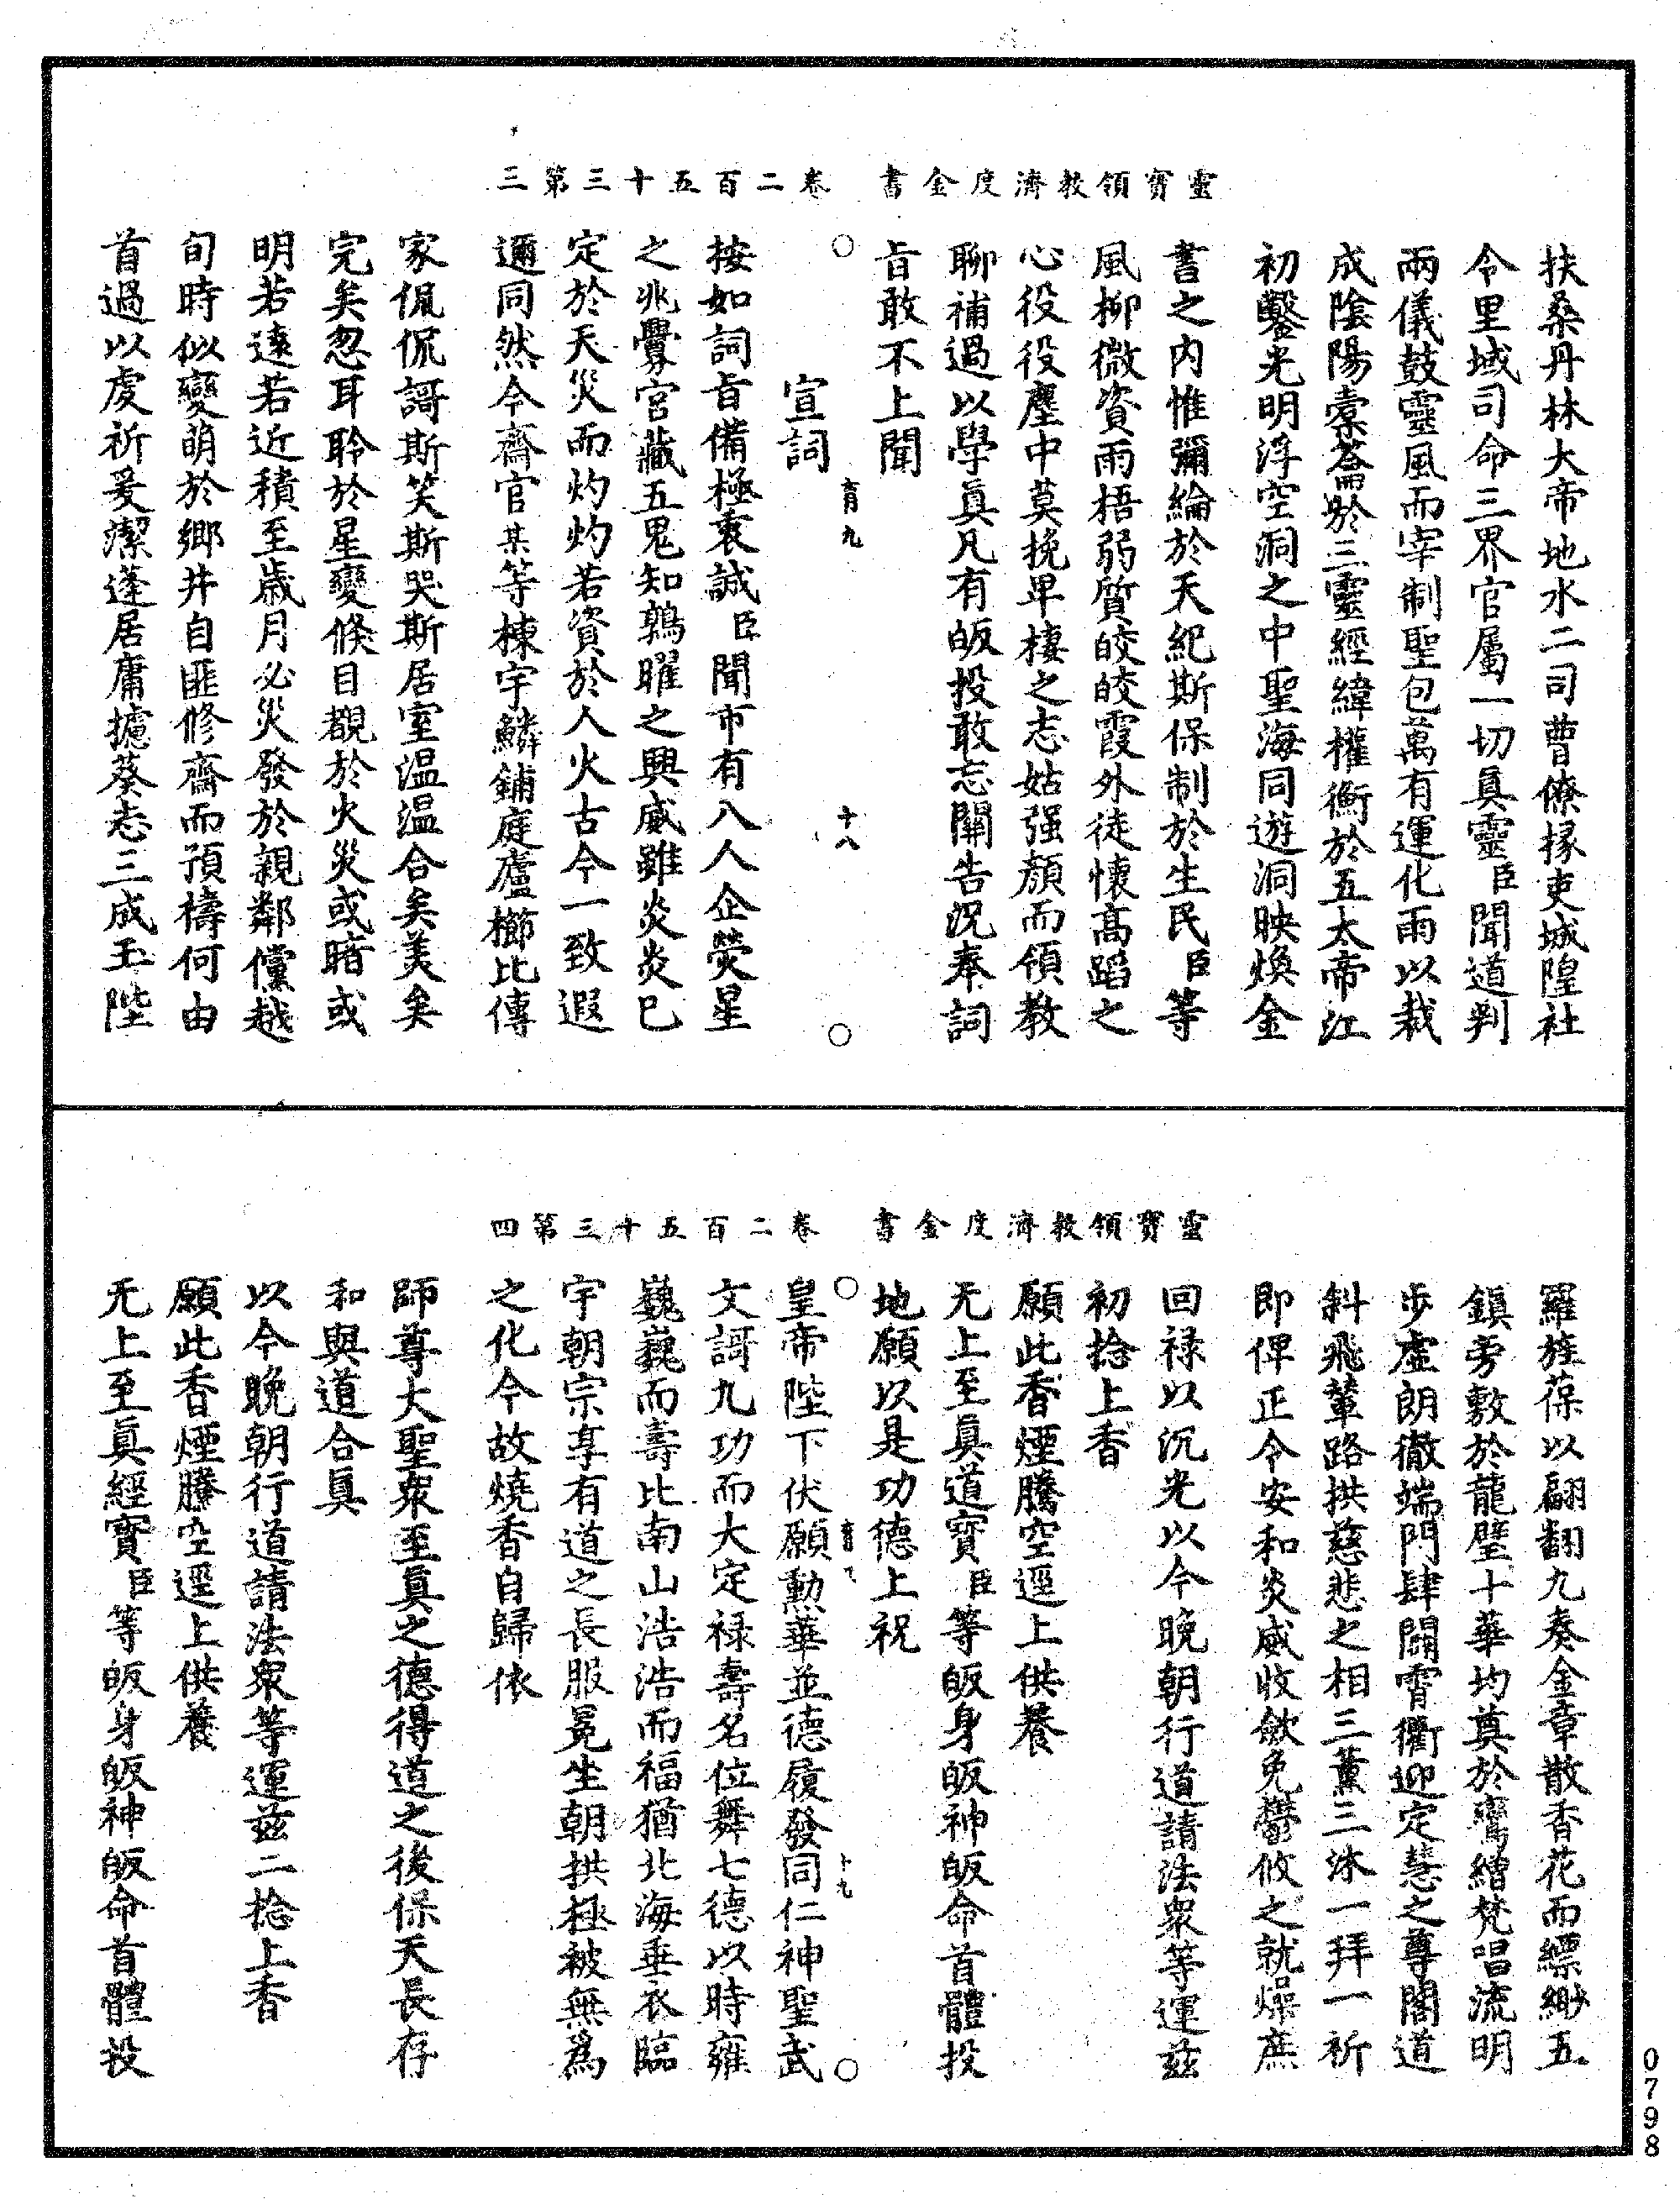 靈寶領教濟度金書 卷二百五十三第三
扶桑丹林大帝地水二司曹僚掾吏城隍社
令里域司命三界官屬一切真靈臣聞道判
兩儀鼓靈風而宰制聖包萬有運化雨以裁
成陰陽橐籥於三靈經緯權衡於五太帝江
初鑿光明浮空洞之中聖海同遊洞映煥金
書之內惟彌綸於天紀斯保制於生民臣等
風柳微資雨梧弱質皎皎霞外徒懷高蹈之
心役役塵中莫挽卑棲之志姑强顏而領教
聊補過以學真凡有皈投敢忘關告況奉詞
旨敢不上聞
宣詞
育九
十八
按如詞旨備極衷誠臣聞市有八人企熒星
之兆爨宮藏五鬼知鶉曜之興威雖炎炎已
定於天災而灼灼若資於人火古今一致遐
邇同然今齋官某等棟宇鱗鋪庭廬櫛比傳
家侃侃謌斯笑斯哭斯居室温温合矣美矣
完矣忽耳聆於星變倏目覩於火災或暗或
明若遠若近積至歲月必災發於親鄰儻越
旬時似變萌於鄉井自匪修齋而預禱何由
首過以虔祈爰潔蓬居庸攄葵志三成玉陛
靈寶領教濟度金書 卷二百五十三第四
羅旌葆以翩翻九奏金章散香花而縹緲五
鎮旁敷於龍璧十華均奠於鸞繒梵唱流明
步虛朗徹端門肆闢霄衢迎定慧之尊閣道
斜飛輦路拱慈悲之相三薰三沐一拜一祈
即俾正令安和炎威收斂免鬱攸之就燥庶
回祿以沉光以今晚朝行道請法眾等運茲
初捻上香
願此香煙騰空逕上供養
无上至真道寶臣等皈身皈神皈命首體投
地願以是功德上祝
皇帝陛下伏願勳華並德履發同仁神聖武
文謌九功而大定祿壽名位舞七德以時雍
巍巍而壽比南山浩浩而福猶北海垂衣臨
宇朝宗享有道之長服冕生朝拱極被無為
之化今故燒香自歸依
師尊大聖眾至真之德得道之後保天長存
和與道合真
以今晚朝行道請法眾等運茲二捻上香
願此香煙騰空逕上供養
无上至真經寶臣等皈身皈神皈命首體投
0798